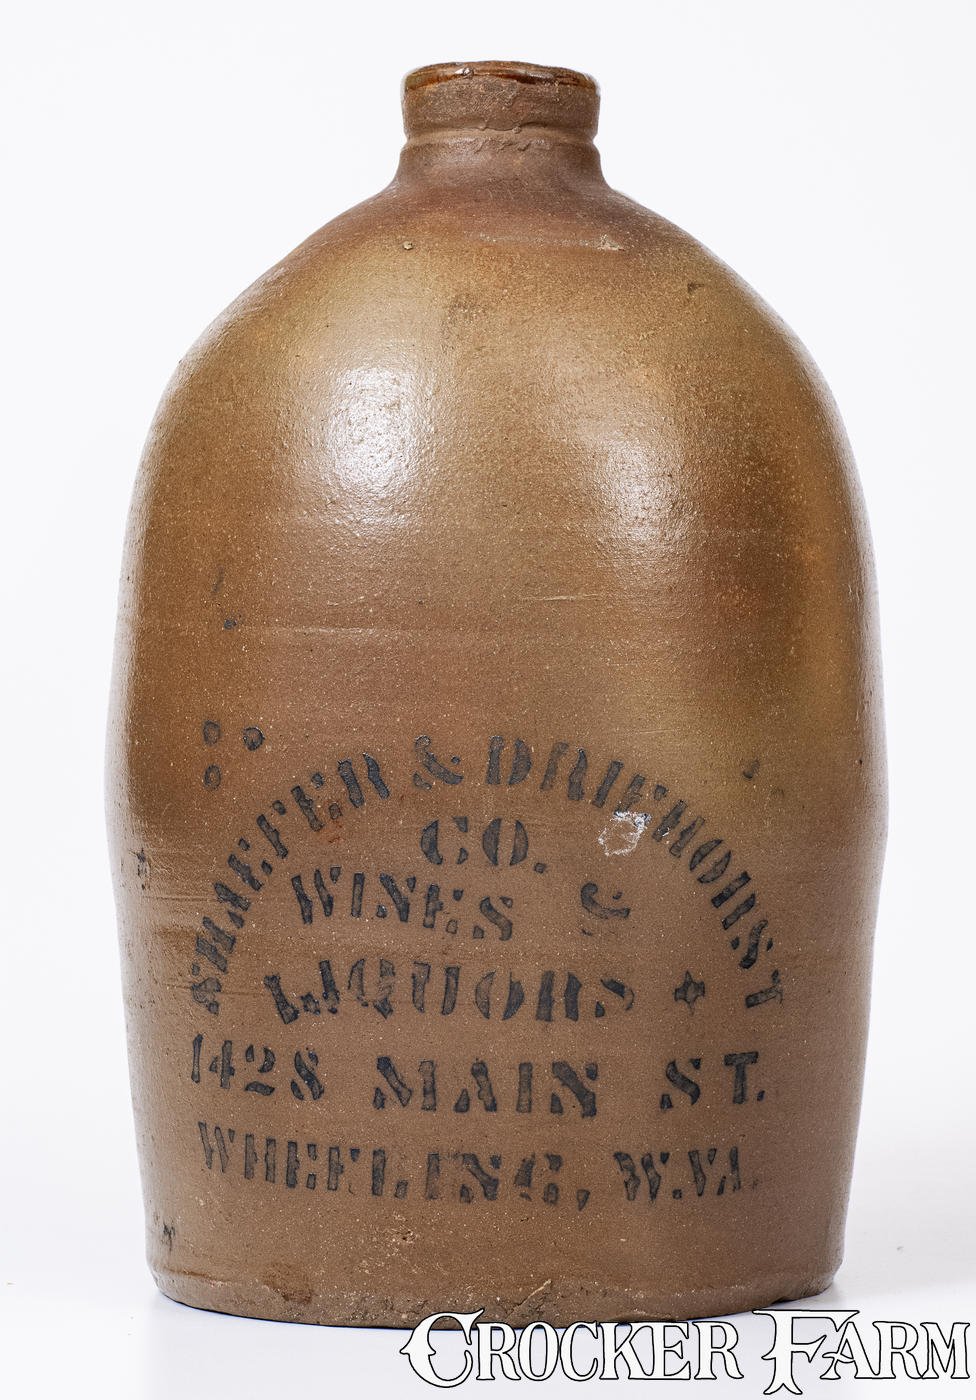 SHAEFER & DRIEHORST
CO.
WINES &
LIQUORS
1428 MAIN ST.
WHEELING, W.VA.
CROCKER FARM